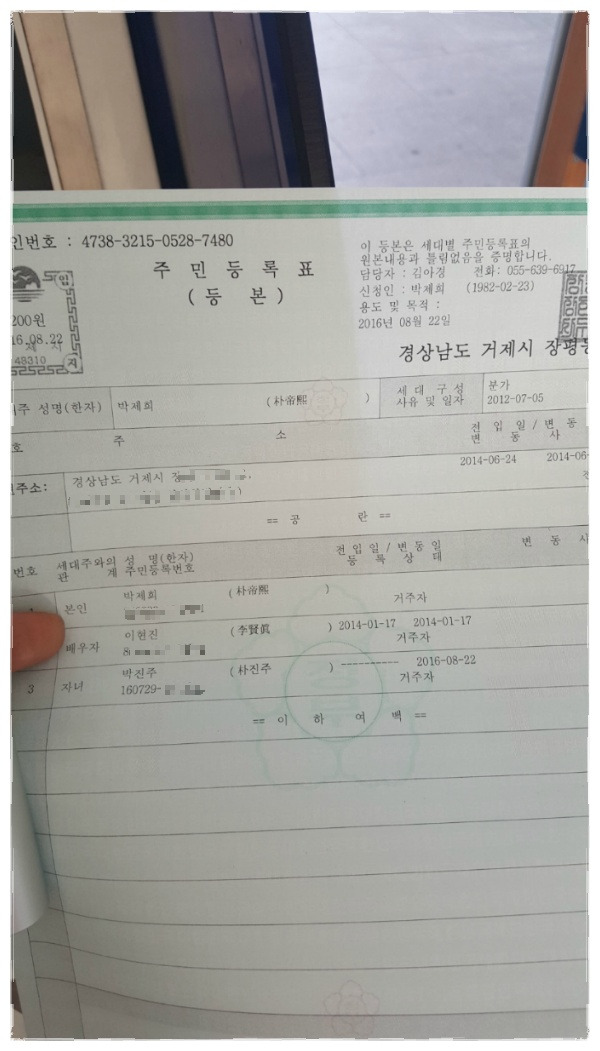 인번호 : 4738-3215-0528-7480
주 민 등 록 표
( 등 본 )
이 등본은 세대별 주민등록표의
원본내용과 틀림없음을 증명합니다.
담당자 : 김아경 전화: 055-639-6917
신청인 : 박제희 (1982-02-23)
용도 및 목적 :
2016년 08월 22일
200원
16.08.22
48310
인
지
경상남도 거제시 장평동
주 성명(한자) 박제희 (朴帝熙 )
세 대 구 성
사유 및 일자
분가
2012-07-05
호 주 소
전 입 일 / 변 동
변 동 사
주소: 경상남도 거제시
2014-06-24 2014-06-
== 공 란 ==
번호
세대주와의 성 명(한자)
관 계 주민등록번호
전 입 일 / 변 동 일
등 록 상 태
변 동 사
본인 박제희 (朴帝熙 )
거주자
배우자 이현진 (李賢眞 ) 2014-01-17 2014-01-17
거주자
3 자녀 박진주 (朴진주 ) ---------- 2016-08-22
160729-
거주자
== 이 하 여 백 ==